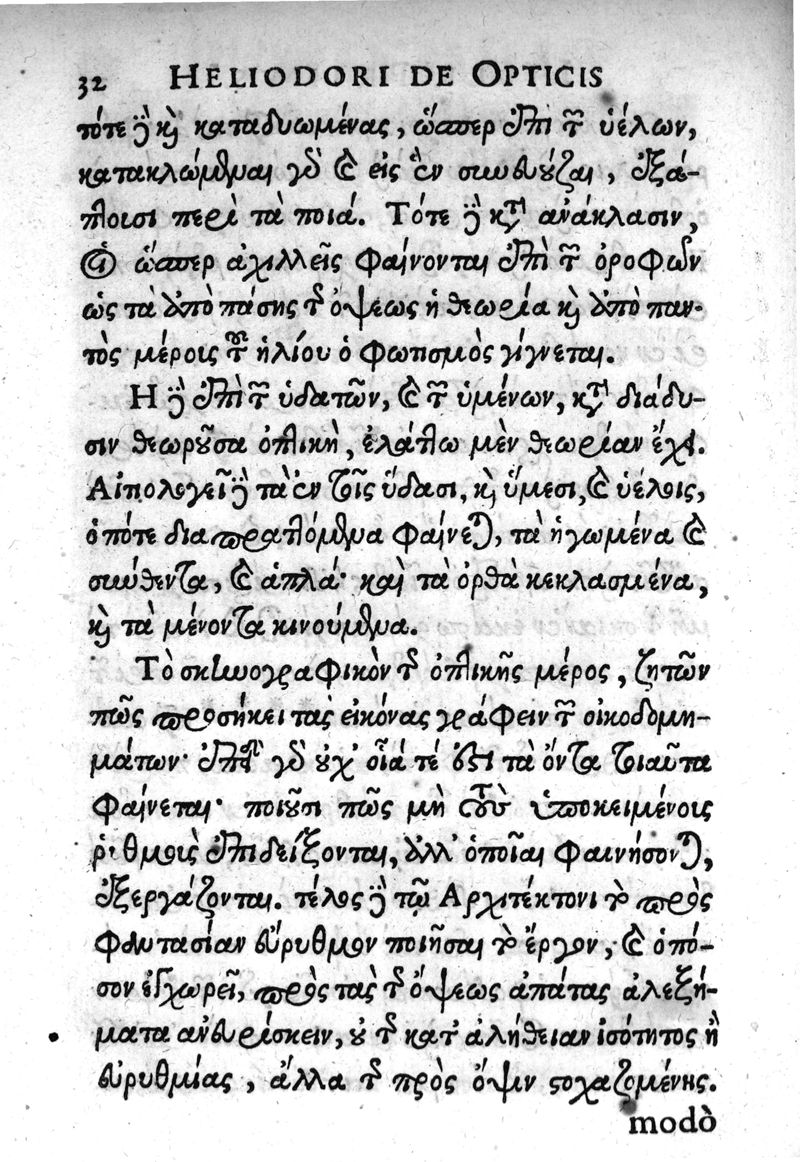 32 HELIODORI DE OPTICIS
τότε δὲ καὶ καταδυωμένας, ὥσπερ ἐπὶ τῶν ὑέλων,
κατακλώμεναι γὸ καὶ εἰς ἓν συνεύζαι, ἐξά-
πλοισι περὶ τὰ ποιά. Τότε δὲ κατ' ἀνάκλασιν,
ὥσπερ ἀχιλλεῖς φαίνονται ἐπὶ τῶν ὀροφῶν
ὡς τὰ ἀπὸ πάσης τῆς ὄψεως ἡ θεωρία καὶ ἀπὸ παν-
τὸς μέροις τοῦ ἡλίου ὁ φωτισμὸς γίγνεται.
Η δὲ ἐπὶ τῶν ὑδατῶν, καὶ τῶν ὑμένων, κατὰ διάδυ-
σιν θεωροῦσα ὀπτικὴ, ἐλάττω μὲν θεωρίαν ἔχει.
Αἰπολογεῖ δὲ τὰ ἐν τοῖς ὕδασι, καὶ ὕμεσι, καὶ ὑέλοις,
ὁπότε διαπραττόμενα φαίνεται, τὰ ἡνωμένα καὶ
συνθεντα, καὶ ἁπλά· καὶ τὰ ὀρθὰ κεκλασμένα,
καὶ τὰ μένοντα κινούμενα.
Τὸ σκηνογραφικὸν τῆς ὀπτικῆς μέρος, ζητῶν
πῶς προσήκει τὰς εἰκόνας γράφειν τῶν οἰκοδομη-
μάτων· ἐπειδὴ γὸ οὐχ' οἷά τέ ἐστι τὰ ὄντα τοιαῦτα
φαίνεται· ποιοῦσι πῶς μὴ τοὺς ὑποκειμένοις
ῥιθμοὶς ἐπιδείξονται, ἀλλ' ὁποῖαι φαινήσονται,
ἐξεργάζονται. τέλος δὲ τῷ Αρχιτέκτονι τὸ πρὸς
φαντασίαν εὔρυθμον ποιῆσαι τὸ ἔργον, καὶ ὁπό-
σον ἐγχωρεῖ, πρὸς τὰς τῆς ὄψεως ἀπάτας ἀλεξή-
ματα ἀνευρίσκειν, οὐ τῆς κατ' ἀλήθειαν ἰσότητος ἢ
εὐρυθμίας, ἀλλα τῆς πρὸς ὄψιν στοχαζομένης.
modὸ